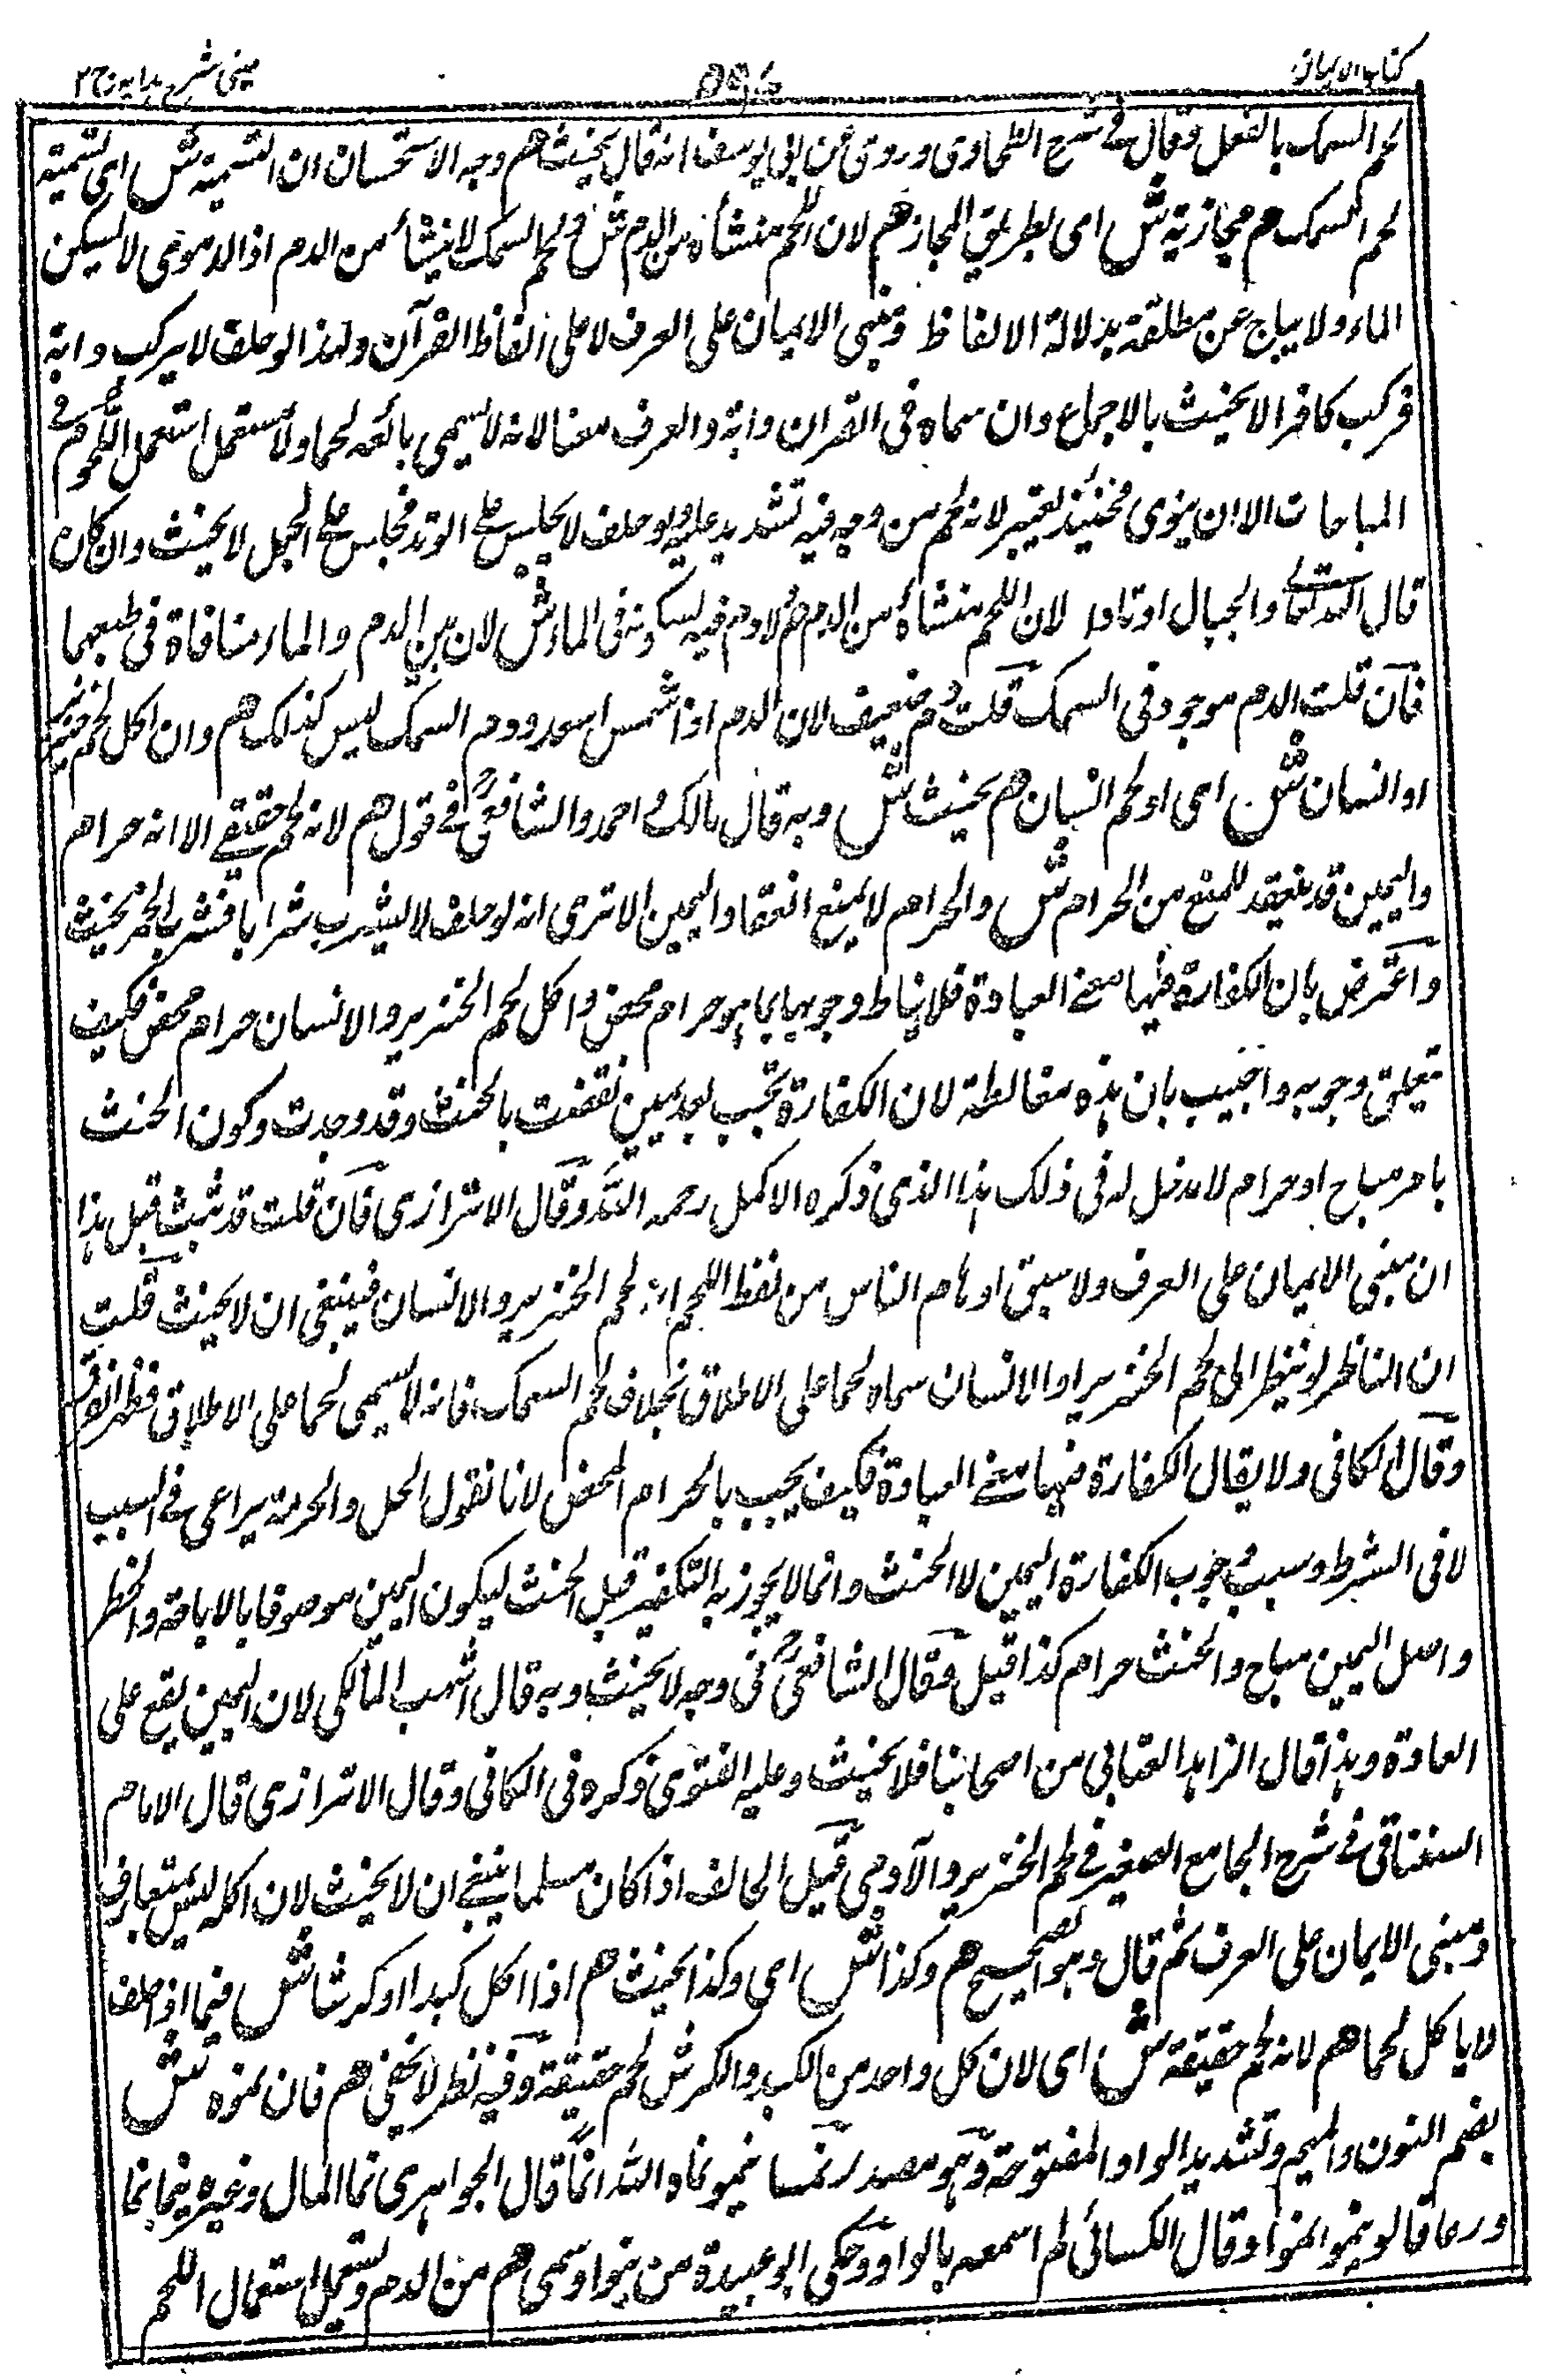 كتاب الايمان
٥٩٤
عينى شرح هدايه ج ٢
لحم السمك بالفعل وقال فى شرح الطحاوى وروى عن ابى يوسف انه قال يحنث هم وجه الاستحسان ان التسمية ش اى تسمية
لحم السمك هم مجازية ش اى بطريق المجاز هم لان اللحم منشأه من الدم ش ولحم السمك لا ينشأ من الدم اذ الدموى لا يسكن
الماء ولا يباح عن مطلقة بدلالة الالفاظ ومبنى الايمان على العرف لا على الفاظ القرآن ولهذا لو حلف لا يركب دابة
فركب كافرا لا يحنث بالاجماع وان سماه فى القران دابة والعرف معنا لانه لا يسمى بائعه لحما ولا يستعمل استعمال اللحوم هم فى
المباحات الا ان ينوى فحينئذ يعتبر لانه لحم من وجه فيه تشديد عليه ولو حلف لا يجلس على الوتد فجلس على الجبل لا يحنث وان كان
قال الله تعالى والجبال اوتادا لان اللحم منشأه من الدم هم ولا دم فيه لسكونه فى الماء ش لان بين الدم والماء منافاة فى طبعهما
فان قلت الدم موجود فى السمك قلت هم ضعيف لان الدم اذا شمس اسود ودم السمك ليس كذلك هم وان اكل لحم خنزير
او انسان ش اى او لحم انسان هم يحنث ش وبه قال مالك واحمد والشافعى فى قول هم لانه لحم حقيقى الا انه حرام
واليمين قد ينعقد للمنع من الحرام ش والحرام لا يمنع انعقاد اليمين الا ترى انه لو حلف لا يشرب شرابا فشرب الخمر يحنث
واعترض بان الكفارة فيها معنى العبادة فلا يناط وجوبها بما هو حرام محض واكل لحم الخنزير والانسان حرام محض فكيف
يتعلق وجوبه واجيب بان هذه مغالطة لان الكفارة تجب بعد يمين نقضت بالحنث وقد وجدت وكون الحنث
بامر مباح او حرام لا مدخل له فى ذلك هذا الذى ذكره الاكمل رحمه الله وقال الاترازى فان قلت قد ثبت قبل هذا
ان مبنى الايمان على العرف ولا سبق اوهام الناس من لفظ اللحم انه لحم الخنزير والانسان فينبغى ان لا يحنث قلت
ان الناظر لو ينظر الى لحم الخنزير او الانسان سماه لحما على الاطلاق بخلاف لحم السمك فانه لا يسمى لحما على الاطلاق فظهر الفرق
وقال الكافى ولا يقال الكفارة فيها معنى العبادة فكيف يجب بالحرام المحض لانا نقول الحل والحرمة يراعى فى السبب
لا فى الشرط وسبب وجوب الكفارة اليمين لا الحنث وانما لا يجوز به التكفير قبل الحنث ليكون اليمين موصوفا بالاباحة والحظر
واصل اليمين مباح والحنث حرام كذا قيل وقال الشافعى فى وجه لا يحنث وبه قال اشهب المالكى لان اليمين يقع على
العادة وبهذا قال الزاهد العتابى من اصحابنا فلا يحنث وعليه الفتوى ذكره فى الكافى وقال الاترازى قال الامام
السغناقى فى شرح الجامع الصغير فى لحم الخنزير والآدمى قيل الحالف اذا كان مسلما ينبغى ان لا يحنث لان اكله ليس بمتعارف
ومبنى الايمان على العرف ثم قال وهو الصحيح هم وكذا ش اى وكذا يحنث هم اذا اكل كبدا او كرشا ش فيما اذا حلف
لا ياكل لحما هم لانه لحم حقيقة ش اى لان كل واحد من الكبد والكرش لحم حقيقة وفيه نظر لا يخفى هم فان نموه ش
بضم النون والميم وتشديد الواو المفتوحة وهو مصدر نما ينمو نماه والله انما قال الجوهرى نما المال وغيره ينمى نما
وربما قالو ينمو نموا وقال الكسائى لم اسمعه بالواو وحكى ابو عبيدة من ينموا وسمى هم من الدم ويستعمل استعمال اللحم